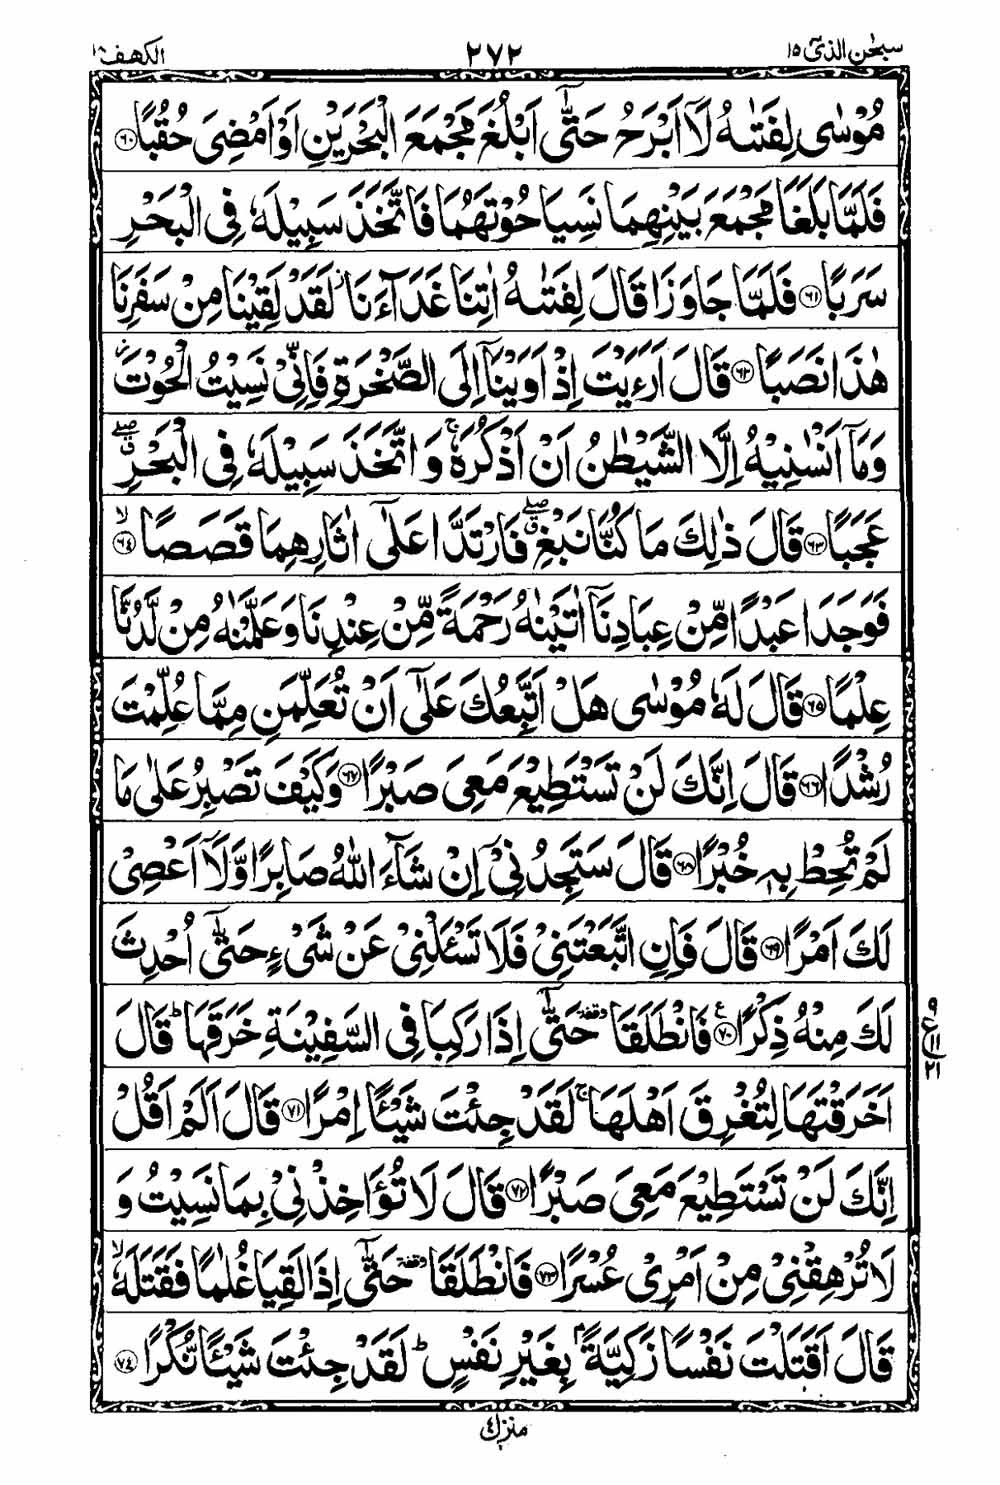 سبحٰن الذیٓ ١٥ ٢٧٢ الكهف ١٨
مُوْسٰى لِفَتٰىهُ لَاۤ اَبْرَحُ حَتّٰۤى اَبْلُغَ مَجْمَعَ الْبَحْرَيْنِ اَوْ اَمْضِىَ حُقُبًا ﴿٦٠﴾
فَلَمَّا بَلَغَا مَجْمَعَ بَيْنِهِمَا نَسِيَا حُوْتَهُمَا فَاتَّخَذَ سَبِيْلَهٗ فِى الْبَحْرِ
سَرَبًا ﴿٦١﴾ فَلَمَّا جَاوَزَا قَالَ لِفَتٰىهُ اٰتِنَا غَدَآءَنَا ز لَقَدْ لَقِيْنَا مِنْ سَفَرِنَا
هٰذَا نَصَبًا ﴿٦٢﴾ قَالَ اَرَءَيْتَ اِذْ اَوَيْنَاۤ اِلَى الصَّخْرَةِ فَاِنِّىْ نَسِيْتُ الْحُوْتَ ز
وَمَاۤ اَنْسٰنِيْهُ اِلَّا الشَّيْطٰنُ اَنْ اَذْكُرَهٗ ۚ وَ اتَّخَذَ سَبِيْلَهٗ فِى الْبَحْرِ ۖق
عَجَبًا ﴿٦٣﴾ قَالَ ذٰلِكَ مَا كُنَّا نَبْغِ ۖق فَارْتَدَّا عَلٰٓى اٰثَارِهِمَا قَصَصًا ۙ﴿٦٤﴾
فَوَجَدَا عَبْدًا مِّنْ عِبَادِنَاۤ اٰتَيْنٰهُ رَحْمَةً مِّنْ عِنْدِنَا وَعَلَّمْنٰهُ مِنْ لَّدُنَّا
عِلْمًا ﴿٦٥﴾ قَالَ لَهٗ مُوْسٰى هَلْ اَتَّبِعُكَ عَلٰٓى اَنْ تُعَلِّمَنِ مِمَّا عُلِّمْتَ
رُشْدًا ﴿٦٦﴾ قَالَ اِنَّكَ لَنْ تَسْتَطِيْعَ مَعِىَ صَبْرًا ﴿٦٧﴾ وَكَيْفَ تَصْبِرُ عَلٰى مَا
لَمْ تُحِطْ بِهٖ خُبْرًا ﴿٦٨﴾ قَالَ سَتَجِدُنِىْۤ اِنْ شَآءَ اللّٰهُ صَابِرًا وَّلَاۤ اَعْصِىْ
لَكَ اَمْرًا ﴿٦٩﴾ قَالَ فَاِنِ اتَّبَعْتَنِىْ فَلَا تَسْـَٔلْنِىْ عَنْ شَىْءٍ حَتّٰۤى اُحْدِثَ
لَكَ مِنْهُ ذِكْرًا ع﴿٧٠﴾ فَانْطَلَقَا وقفة حَتّٰۤى اِذَا رَكِبَا فِى السَّفِيْنَةِ خَرَقَهَا ؕ قَالَ
٩
ع
١١
٢١
اَخَرَقْتَهَا لِتُغْرِقَ اَهْلَهَا ۚ لَقَدْ جِئْتَ شَيْـًٔا اِمْرًا ﴿٧١﴾ قَالَ اَلَمْ اَقُلْ
اِنَّكَ لَنْ تَسْتَطِيْعَ مَعِىَ صَبْرًا ﴿٧٢﴾ قَالَ لَا تُؤَاخِذْنِىْ بِمَا نَسِيْتُ وَ
لَا تُرْهِقْنِىْ مِنْ اَمْرِىْ عُسْرًا ﴿٧٣﴾ فَانْطَلَقَا وقفة حَتّٰۤى اِذَا لَقِيَا غُلٰمًا فَقَتَلَهٗ ۙ
قَالَ اَقَتَلْتَ نَفْسًا زَكِيَّةًۢ بِغَيْرِ نَفْسٍ ؕ لَقَدْ جِئْتَ شَيْـًٔا نُّكْرًا ﴿٧٤﴾
منزل ٤